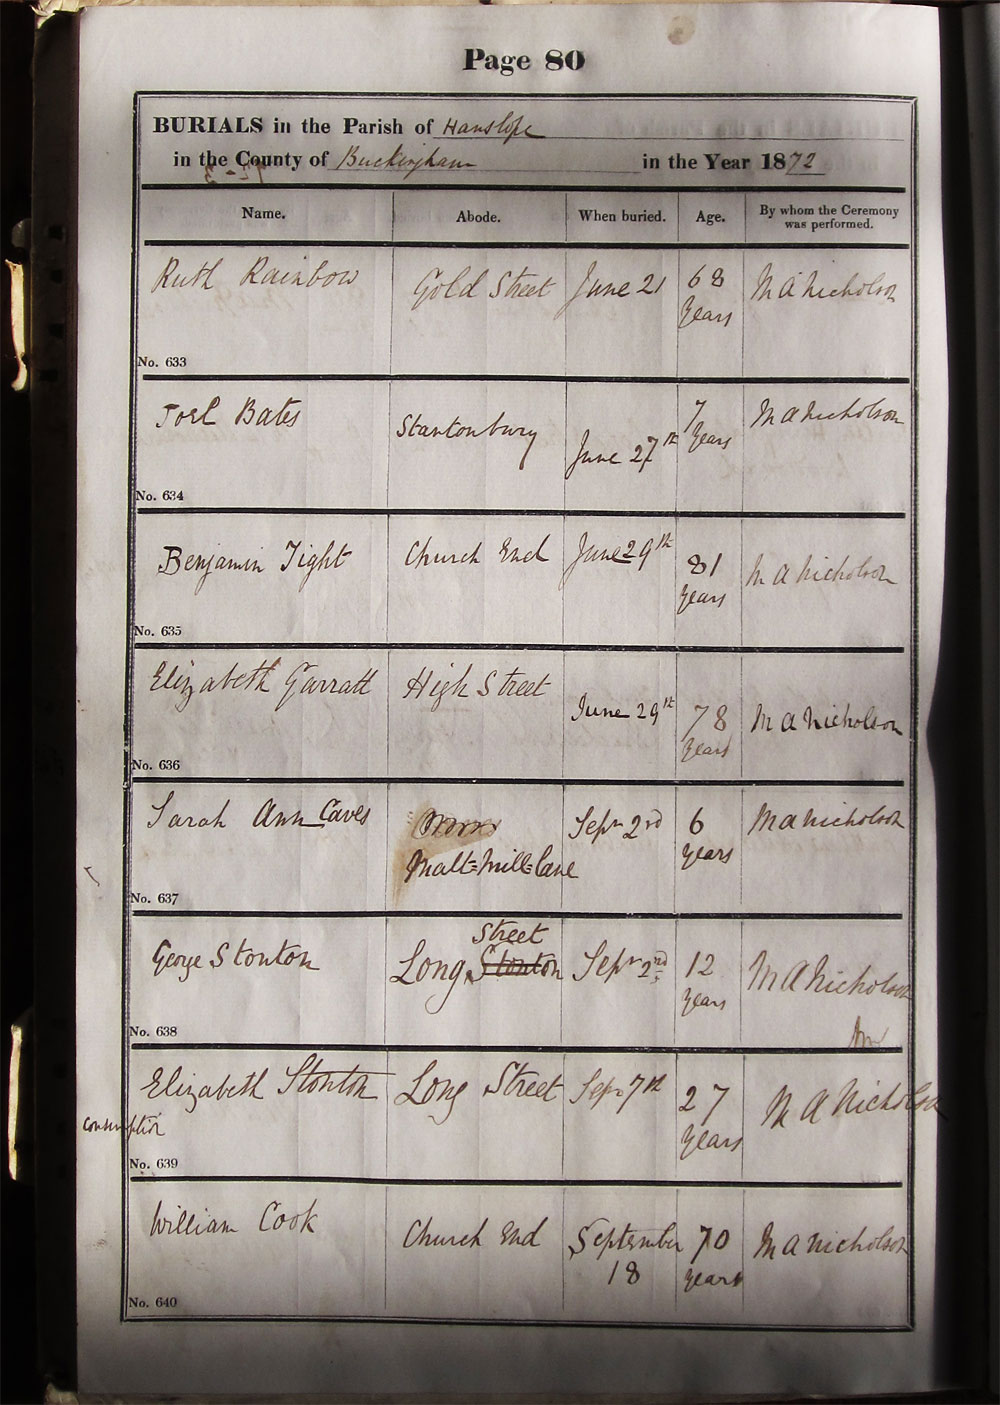 Page 80
BURIALS in the Parish of Hanslope
in the County of Buckingham in the Year 1872
Name. Abode. When buried. Age. By whom the Ceremony was performed.
Ruth Rainbow Gold Street June 21 68 years M A Nicholson
No. 633
Joel Bates Stantonbury June 27th 7 years M A Nicholson
No. 634
Benjamin Tight Church End June 29th 81 years M A Nicholson
No. 635
Elizabeth Garratt High Street June 29th 78 years M A Nicholson
No. 636
Sarah Ann Caves Malt=Mill=lane Sepr 2nd 6 years M A Nicholson
No. 637
George Stonton Long Street Stonton Sepr 2nd 12 years M A Nicholson
No. 638
Elizabeth Stonton Long Street Sepr 7th 27 years M A Nicholson
consumption
No. 639
William Cook Church End September 18 70 years M A Nicholson
No. 640